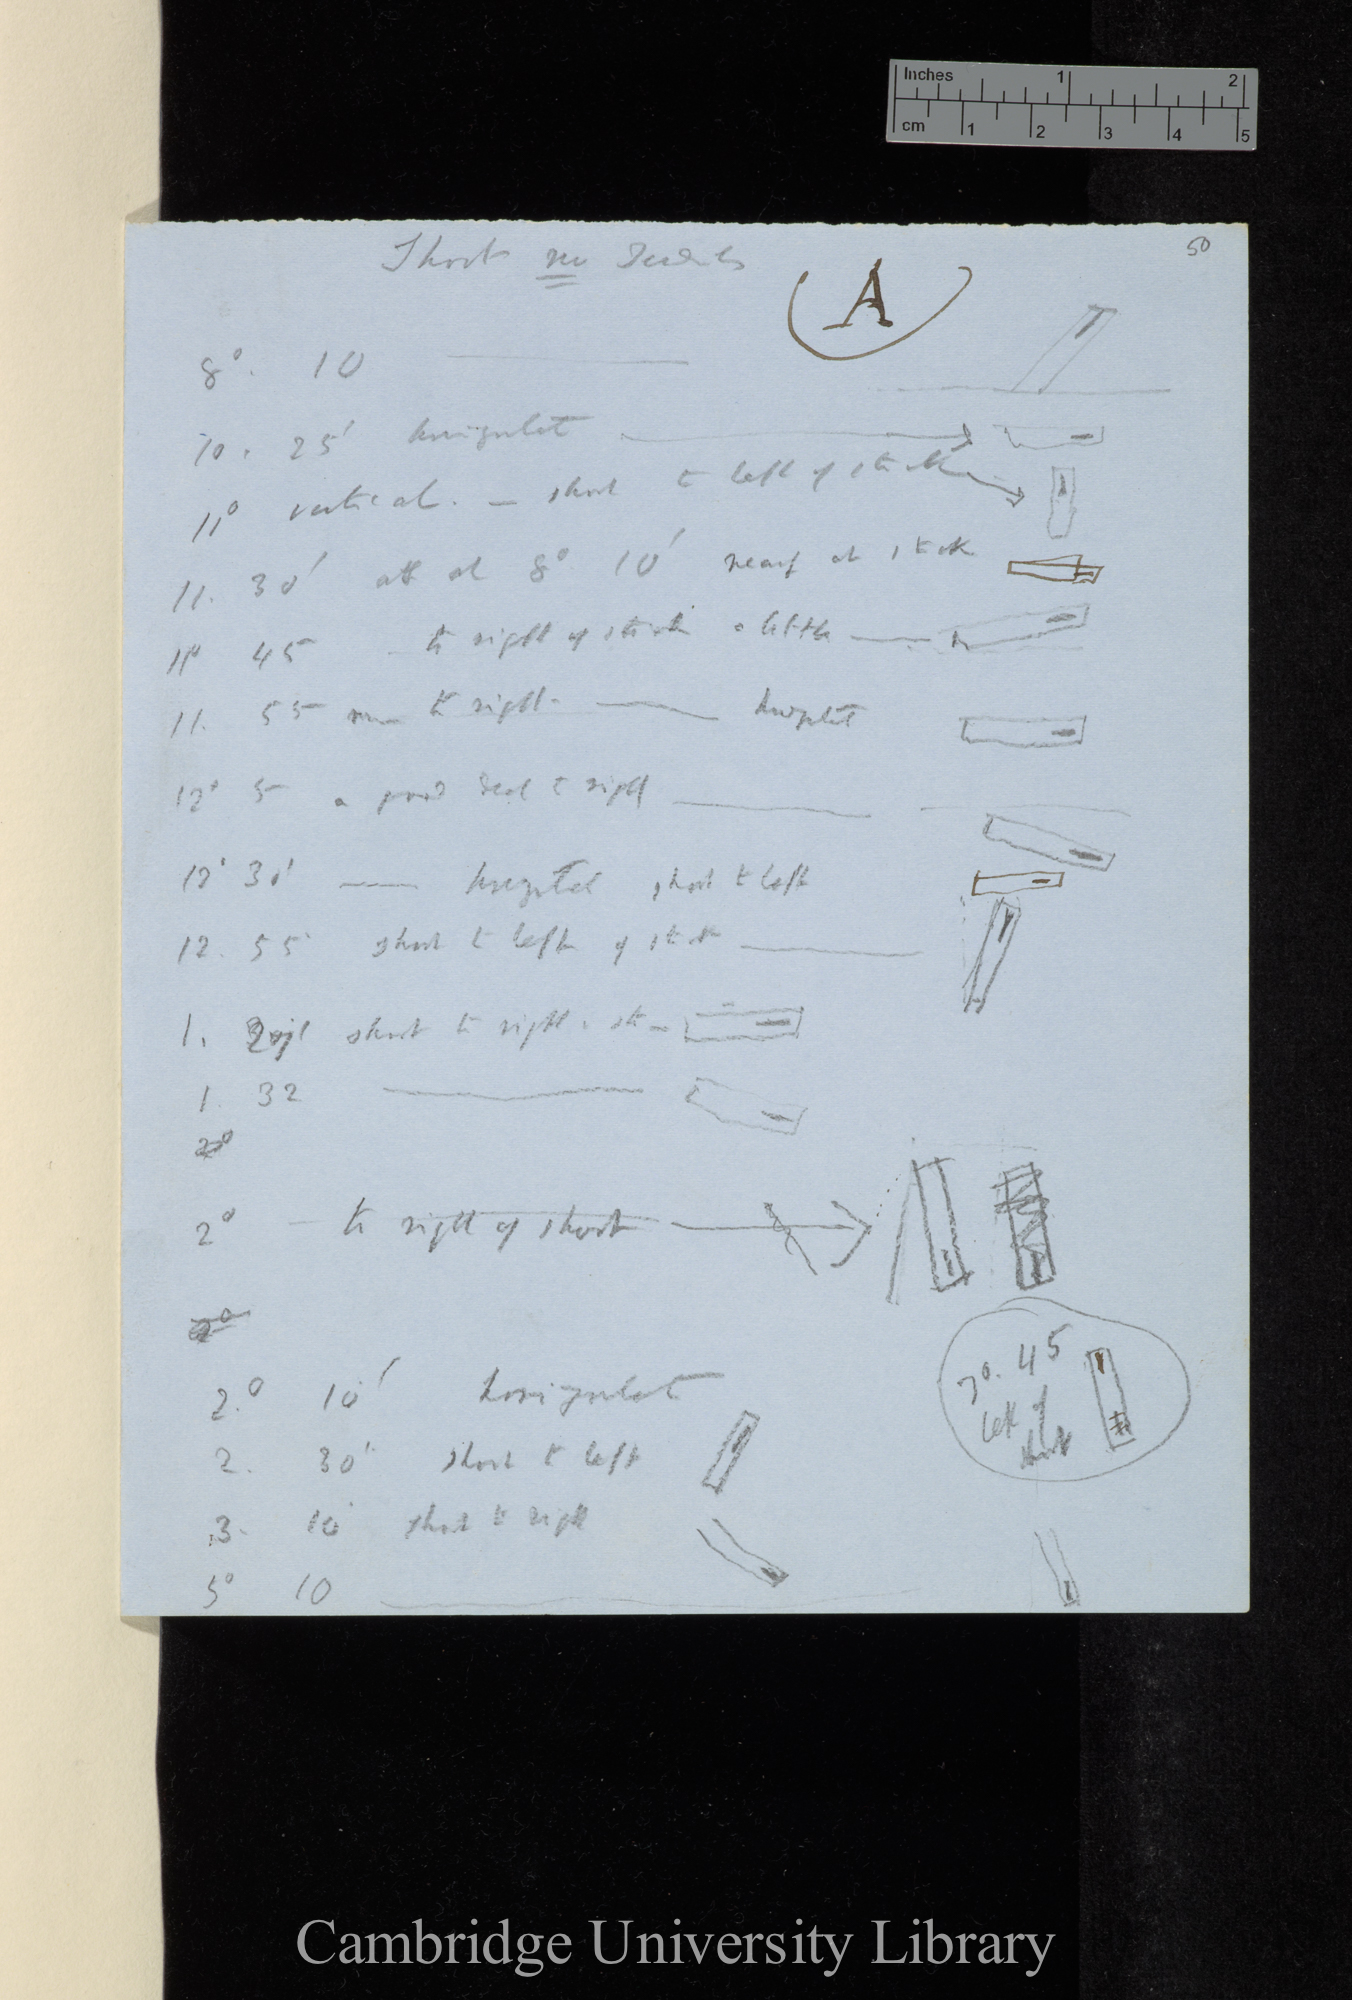 Inches 1 2
cm 1 2 3 4 5
50
Shoot no
A
8° 10
10. 25' horizontal
11° vertical. — shoot to left of stick
11. 30' as at 8° 10' nearly at stick
11° 45 to right of stick a little
11. 55 to right — horizontal
12° 5 a good deal to right
12° 30' — horizontal shoot to left
12. 55 shoot to left of stick
1. shoot to right
1. 32
2°
2° to right of shoot
2° 10' horizontal
7°. 45
left of
shoot
2. 30' shoot to left
3. 10' shoot to right
5° 10
Cambridge University Library